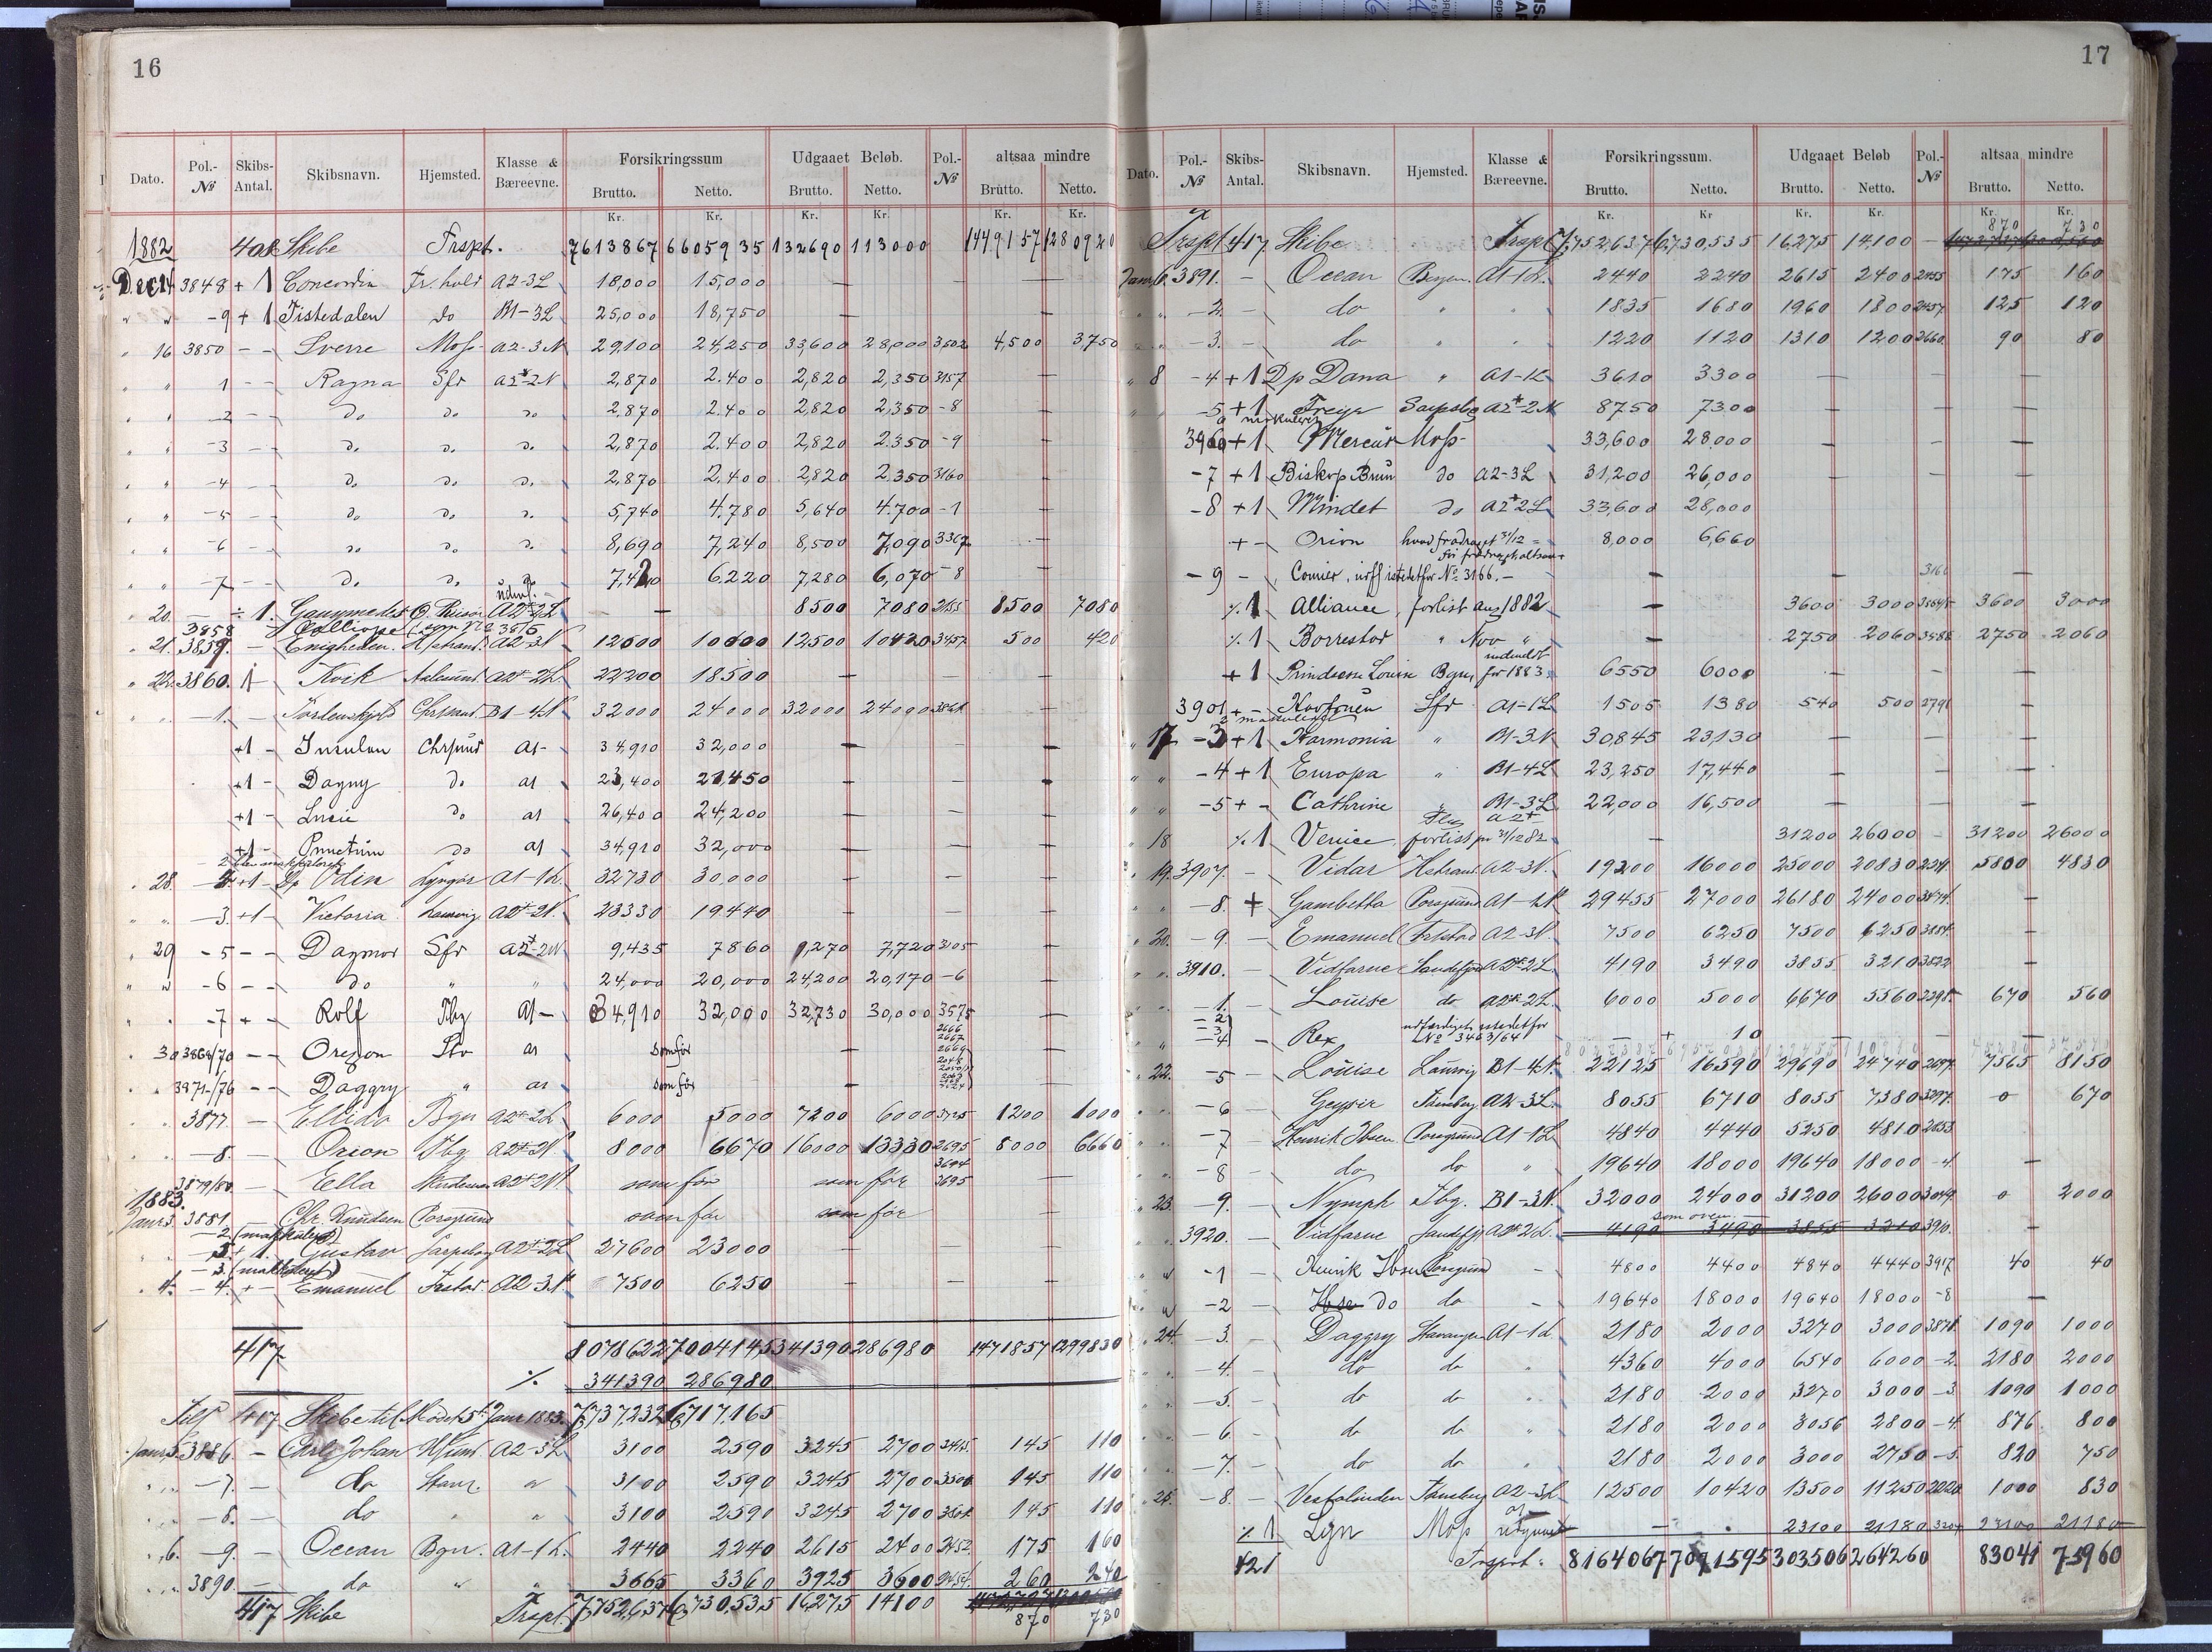 16
Dato. Pol.-№ Skibs-Antal. Skibsnavn. Hjemsted. Klasse & Bæreevne. Forsikringssum Brutto. Netto. Udgaaet Beløb. Brutto. Netto. Pol.-№ altsaa mindre Brutto. Netto.
Kr. Kr. Kr. Kr. Kr. Kr.
1882 408 Skibe Trspt. 7613867 6605935 132690 113000 1449157 1280920
Dec 14 3848 + 1 Concordia Fr.hald A2-3L 18,000 15,000 — — —
" " -9 + 1 Tistedalen do B1-3L 25,000 18,750 — —
" 16 3850 - - Sverre Moss A2-3N 29,100 24,250 33,600 28,000 3502 4,500 3,750
" " 1 - - Ragna Sfr A2*-2N 2,870 2.400 2,820 2,350 3157 —
" " -2 - - do do do 2,870 2.400 2,820 2,350 -8 —
" " -3 - - do do do 2,870 2.400 2,820 2.350 -9 —
" " -4 - - do do do 2,870 2.400 2,820 2.350 3160 —
" " -5 - - do do do 5,740 4.780 5,640 4.700 -1 —
" " -6 - - do do do 8,690 7,240 8,500 7,090 3367 —
" " -7 - - do do do 7,420 6220 7,280 6,070 -8 —
" 20. — ÷ 1. Ganymedes O. Risør udm. A2*-2L — 8500 7080 2155 8500 7080
3858 Calliope
" 21. 3859. - Enigheden A2-3N 12500 10000 12500 10420 3457 500 420
" 22. 3860. 1 Kvik Aalesund A2*-2L 22200 18500 — — —
" " -1. - Tordenskjold Chrsand B1-4N 32000 24000 32000 24000 —
+1 - Insulan Chrsund A1- 34910 32,000 — — —
+1 - Dagny do A1 23,400 21,450 — — —
+1 - Lucie do A1 26,400 24,200 — — —
+1 - Punctum do A1 34,910 32,000 — — —
" 28 +1 - Dp Odin Lyngør A1-1L 32730 30,000 — — —
" " -3. +1 - Victoria Laurvig A2*-2N. 23330 19440 — — —
" 29 -5 - - Dagmar Sfr A2*-2N 9,435 7860 9,270 7,720 3105 —
" " -6 - - do " " 24,000 20,000 24,200 20,170 -6 —
" " -7 + - Rolf Tbg A1- 34,910 32,000 32,730 30,000 3575 —
2666
2667
" 30 3868/70 - - Oregon Stv A1 som før — —
" " 3871-/76 - - Daggry " A1 som før — —
" " 3877. - Ellida Bgn A2*-2L 6000 5000 7200 6000 3725 1200 1000
" " -8. - Orion Tbg A2*-2N. 8000 6670 16000 13330 2695 8000 6660
3879/80. - Ella A2*-2N som før som før 3694 3695 —
1883.
Janr 3. 3881 - Chr. Knudsen Porsgrund som før som før —
-2. (makuleret)
5 + 1. Gustav Sarpsborg A2*-2L 27600 23000 — —
-3. (makuleret)
" 4. -4. + - Emanuel Frstad. A2-3N. 7500 6250 — — —
417 8078622 7004145 341390 286980 1471857 1299830
% 341390 286980
417 Skibe til Mødet 5te Janr 1883. 7,737,232 6,717,165
Janr 5. 3886 - Carl Johan A2-3L 3100 2590 3245 2700 3415. 145 110
" " -7. - do " 3100 2590 3245 2700 3500 145 110
" " -8. - do " " 3100 2590 3245 2700 3501 145 110
" 6. -9. - Ocean Bgn. A1-1L. 2440 2240 2615 2400 2452. 175 160
" " 3890. - do " " 3665 3360 3925 3600 2454. 260 240
417 Skibe Trspt. 7,752,637 6,730,535 16275 14100
870 730
17
Dato. Pol.-№ Skibs-Antal. Skibsnavn. Hjemsted. Klasse & Bæreevne. Forsikringssum. Brutto. Netto. Udgaaet Beløb Brutto. Netto. Pol.-№ altsaa mindre Brutto. Netto.
Kr. Kr. Kr. Kr. Kr. Kr.
870 730
Trspt 417 Skibe Trspt 7,752,637 6,730,535 16,275 14,100 —
Janr 6. 3891. - Ocean Bergen. A1-1L. 2440 2240 2615 2400 2455 175 160
" " -2. - do " " 1835 1680 1960 1800 2457 125 120
" " -3. - do " " 1220 1120 1310 1200 2660 90 80
" 8 -4 + 1 Dp Dana " A1-1L 3610 3300 — — —
-5 + 1 Freya Sarpsbg A2*-2N 8750 7300 — — —
makuleret
+ 1 Mercur Moss 33,600 28,000 — — —
-7 + 1 Biskop Brun do A2-3L 31,200 26,000 — — —
-8 + 1 Mindet do A2*2L 33,600 28,000
+ - Orion hvad fradraget 31/12 = 8,000 6,660
-9 - Comier, istedetfor No 3166. - — — 3166 —
% 1 Alliance, forlist aug 1882 — 3600 3000 3600 3000
% 1 Borrestad " Nov " — 2750 2060 3588 2750 2060
+ 1 Prindsesse Louise Bgn, for 1883 6550 6000 — — —
3901 + - Havfruen Sfr A1-1L 1505 1380 540 500 2791
" 17 -3 + 1 Harmonia " B1-3N 30,845 23,130 — — —
" " -4 + 1 Europa " B1-4L 23,250 17,440 — — —
" " -5 + - Cathrine " B1-3L 22,000 16,500 — — —
" 18 % 1 Venice forlist pr 31/12 82 A2* — 31200 26000 - 31200 26000
" 19. 3907. - Vidar Hstrand. A2-3N. 19200 16000 25000 20830 5800 4830
" " -8. + Gambetta Porsgrund A1-1N 29455 27000 26180 24000 3474. —
" 20. -9. - Emanuel Frstad A2-3N. 7500 6250 7500 6250 —
" " 3910. - Vidfarne Sandefjord A2*-2L 4190 3490 3855 3210 3522 —
-1. - Louise do A2*-2L 6000 5000 6670 5560 3398. 670 560
-2
-3
-4 - Rex udfærdiget istedetfor No 3463/64 — + 10 — —
" 22. -5 - Louise Laurvig B1-4N. 22125 16590 29690 24740 2697. 7565 8150
" " -6 - Geysir Tønsberg A2-3L. 8055 6710 8055 7380 3297. 0 670
-7 - Henrik Ibsen Porsgrund A1-1L 4840 4440 5250 4810 2853
" " -8 - do do " 19640 18000 19640 18000 -4. —
" 23. -9. - Nymph Tbg. B1-3N. 32000 24000 31200 26000 3049. 0 2000
som oven —
" " 3920. - Vidfarne Sandefj A2*2L. 4190 3490 3855 3210 3910. —
" " -1 - Henrik Ibsen Porsgrund - 4800 4400 4840 4440 3917 40 40
" " -2 - do do - 19640 18000 19640 18000 -8 —
" 24. -3. - Daggry Stavanger A1-1L 2180 2000 3270 3000 3871. 1090 1000
" " -4. - do do " 4360 4000 6540 6000 -2. 2180 2000
" " -5. - do do " 2180 2000 3270 3000 -3. 1090 1000
" " -6 - do do " 2180 2000 3056 2800 -4. 876. 800
" " -7. - do do " 2180 2000 3000 2750 -5. 820 750
" 25. -8. - Vestalinden Tønsberg A2-3L 12500 10420 13500 11250 2020 1000 830
% 1 Lyn Moss A1 — 23100 21180 23100 21180
421 Trsprt. 8164067 7071595 303506 264260 83041 75960